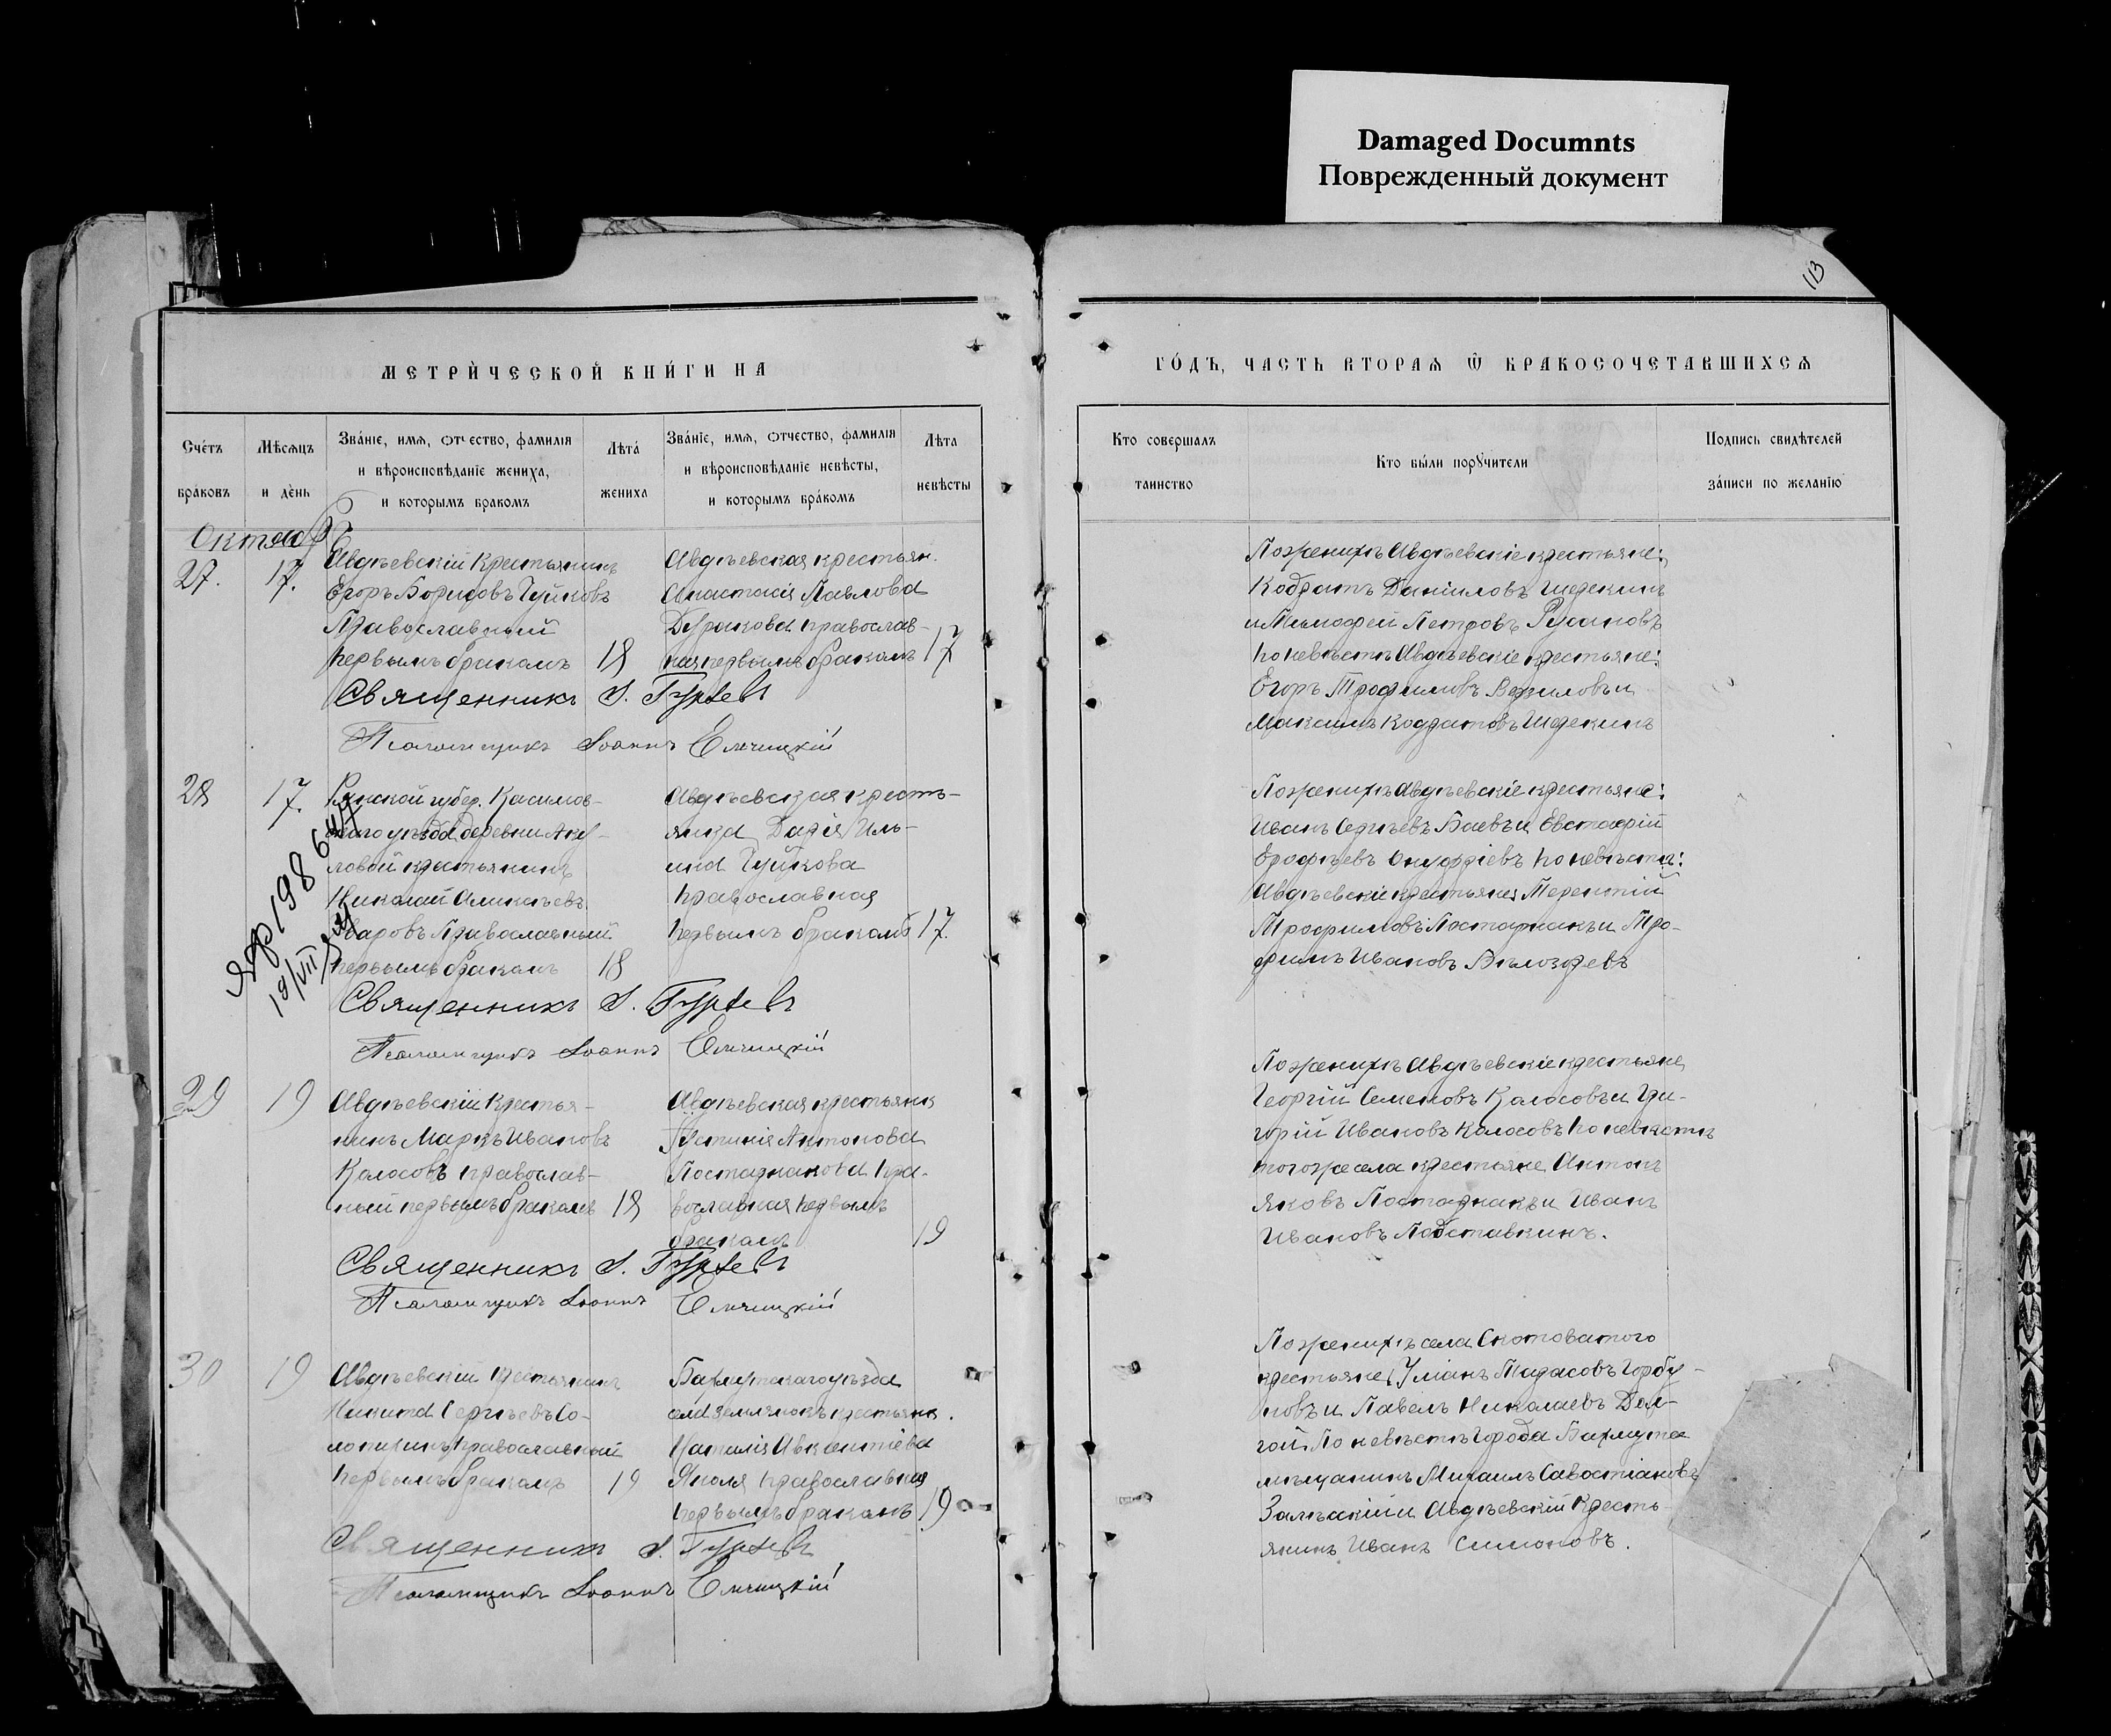 Damaged Documnts
Поврежденный документ
113
МЕТРИ́ЧЕСКОЙ КНИ́ГИ НА
ГО́ДЪ, ЧАСТЬ ВТОРАѦ Ѿ БРАКОСОЧЕТАВШИХСѦ
Сче́тъ бра́ковъ
Мѣсѧцъ и де́нь
Зва́нїе, имѧ, отчество, фамилїя
и вѣроисповѣданїе жениха,
и которымъ бракомъ
Лѣта́ жениха
Зва́нїе, имѧ, отчество, фамилїя
и вѣроисповѣданїе невѣсты,
и которымъ бра́комъ
Лѣта невѣсты
Кто совершалъ таинство
Кто бы́ли порꙋчители
Подпись свидѣтелей
за́писи по желанїю
Октябр
27.
17.
Авдѣевскій Крестьянинъ
Егоръ Борисовъ Чуйковъ
Православный
первымъ бракомъ
18
Авдѣевская крестьян.
Анастасія Павлова
Дуракова православ-
ная первымъ бракомъ
17
Священникъ І. Гурьевъ
Псаломщикъ Іоаннъ Елчицкій
По женихѣ Авдѣевскіе крестьяне:
Кодратъ Даніиловъ Щедекинъ
и Тимофей Петровъ Русановъ
по невѣстѣ Авдѣевскіе крестьяне:
Егоръ Трофимовъ и
Максимъ Кодратовъ Щедекинъ
28
17.
губер. Касимов-
скаго уѣзда деревни Аку-
ловой крестьянинъ
Николай Аликѣевъ
Уваровъ Православный
первымъ бракомъ
18
Авдѣевская кресть-
янка Дарія Иль-
ина Чуйкова
православная
первымъ бракомъ
17.
ЯФ 198647
19/VII
Священникъ І. Гурьевъ
Псаломщикъ Іоаннъ Елчицкій
По женихѣ Авдѣевскіе крестьяне:
Иванъ Сергѣевъ Баевъ и Евстафій
Ерофѣевъ Онуфріевъ по невѣстѣ:
Авдѣевскіе крестьяне Терентій
Трофимовъ Постарнакъ и Тро-
фимъ Ивановъ Бѣлозоревъ
29
19
Авдѣевскій Крестья-
нинъ Маркъ Ивановъ
Колосовъ православ-
ный первымъ бракомъ
18
Авдѣевская крестьянка
Устинія Антонова
Постарнакова пра-
вославная первымъ
бракомъ
19
Священникъ І. Гурьевъ
Псаломщикъ Іоаннъ Елчицкій
По женихѣ Авдѣевскіе крестьяне
Георгій Семеновъ Колосовъ и Гри-
горій Ивановъ Колосовъ по невѣстѣ
того же села крестьяне Антонъ
Яковъ Постарнакъ и Иванъ
Ивановъ Подставкинъ.
30
19
Авдѣевскій Крестьянинъ
Никита Сергѣевъ Со-
лопихинъ православный
первымъ бракомъ
19
Бахмутскаго уѣзда
села Землянокъ крестьянк.
Наталія Авксентіева
православная
первымъ бракомъ
19
Священникъ І. Гурьевъ
Псаломщикъ Іоаннъ Елчицкій
По женихѣ села Скотоватого
крестьяне Уліанъ Тарасовъ Горбу-
новъ и Павелъ Николаевъ Дол-
гой. По невѣстѣ города Бахмута
мѣщанинъ Михаилъ Савостіановъ
Залѣскій и Авдѣевскій Кресть-
янинъ Иванъ Симоновъ.